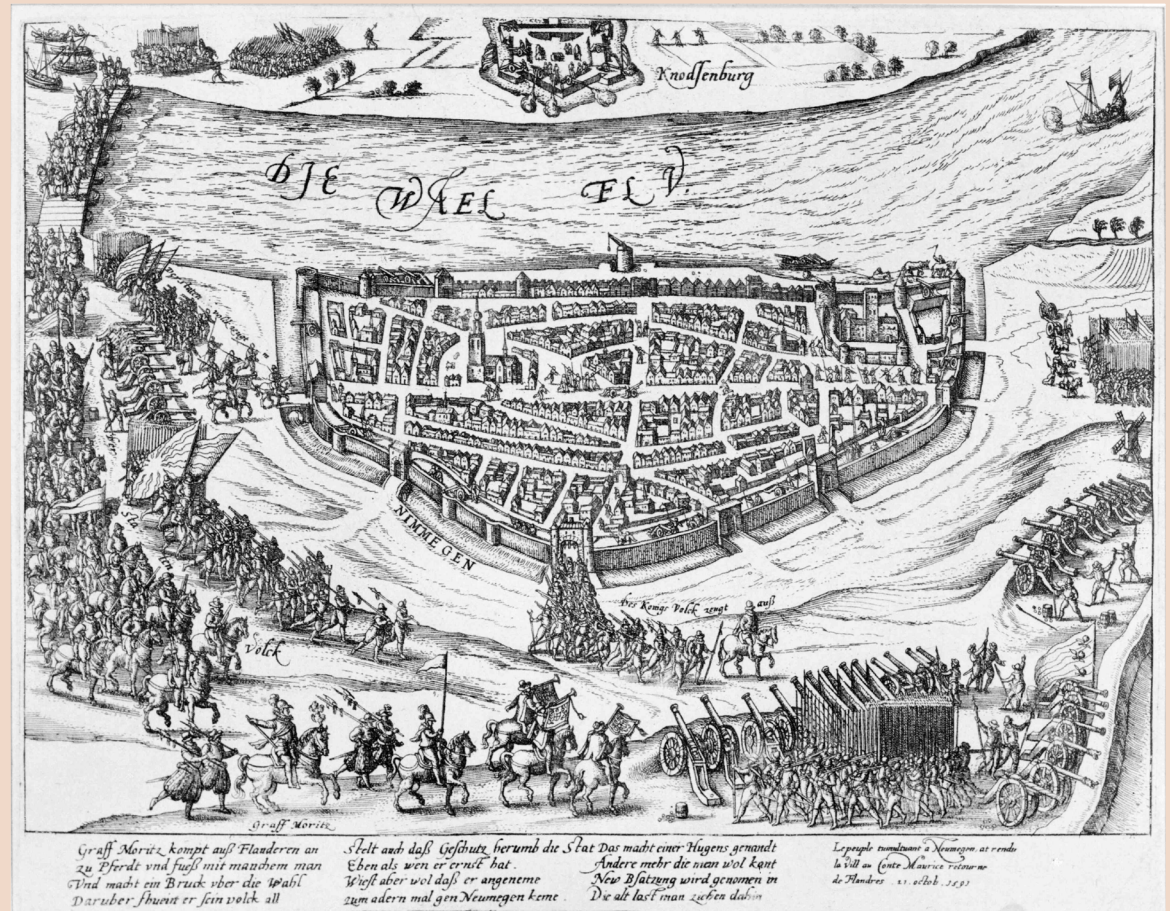 Knodsenburg
DIE WAEL FLV.
NIMMEGEN
Des Konigs Volck zeugt auß
Volck
Graff Moritz
Graff Moritz kompt auß Flanderen an
zu Pferdt vnd fueß mit manchem man
Vnd macht ein Bruck vber die Wahl
Daruber fhueirt er sein volck all
Stelt auch daß Geschutz herumb die Stat
Eben als wen er ernst hat.
Wiest aber wol daß er angeneme
zum adern mal gen Neumegen keme.
Das macht einer Hugens genandt
Andere mehr die man wol kant
New Bsatzung wird genomen in
Die alt lost man ziehen dahin
Le peuple tumultuant a Neumegen, at rendu
la vill au Conte Maurice retourne
de Flandres. 21. octob. 1591